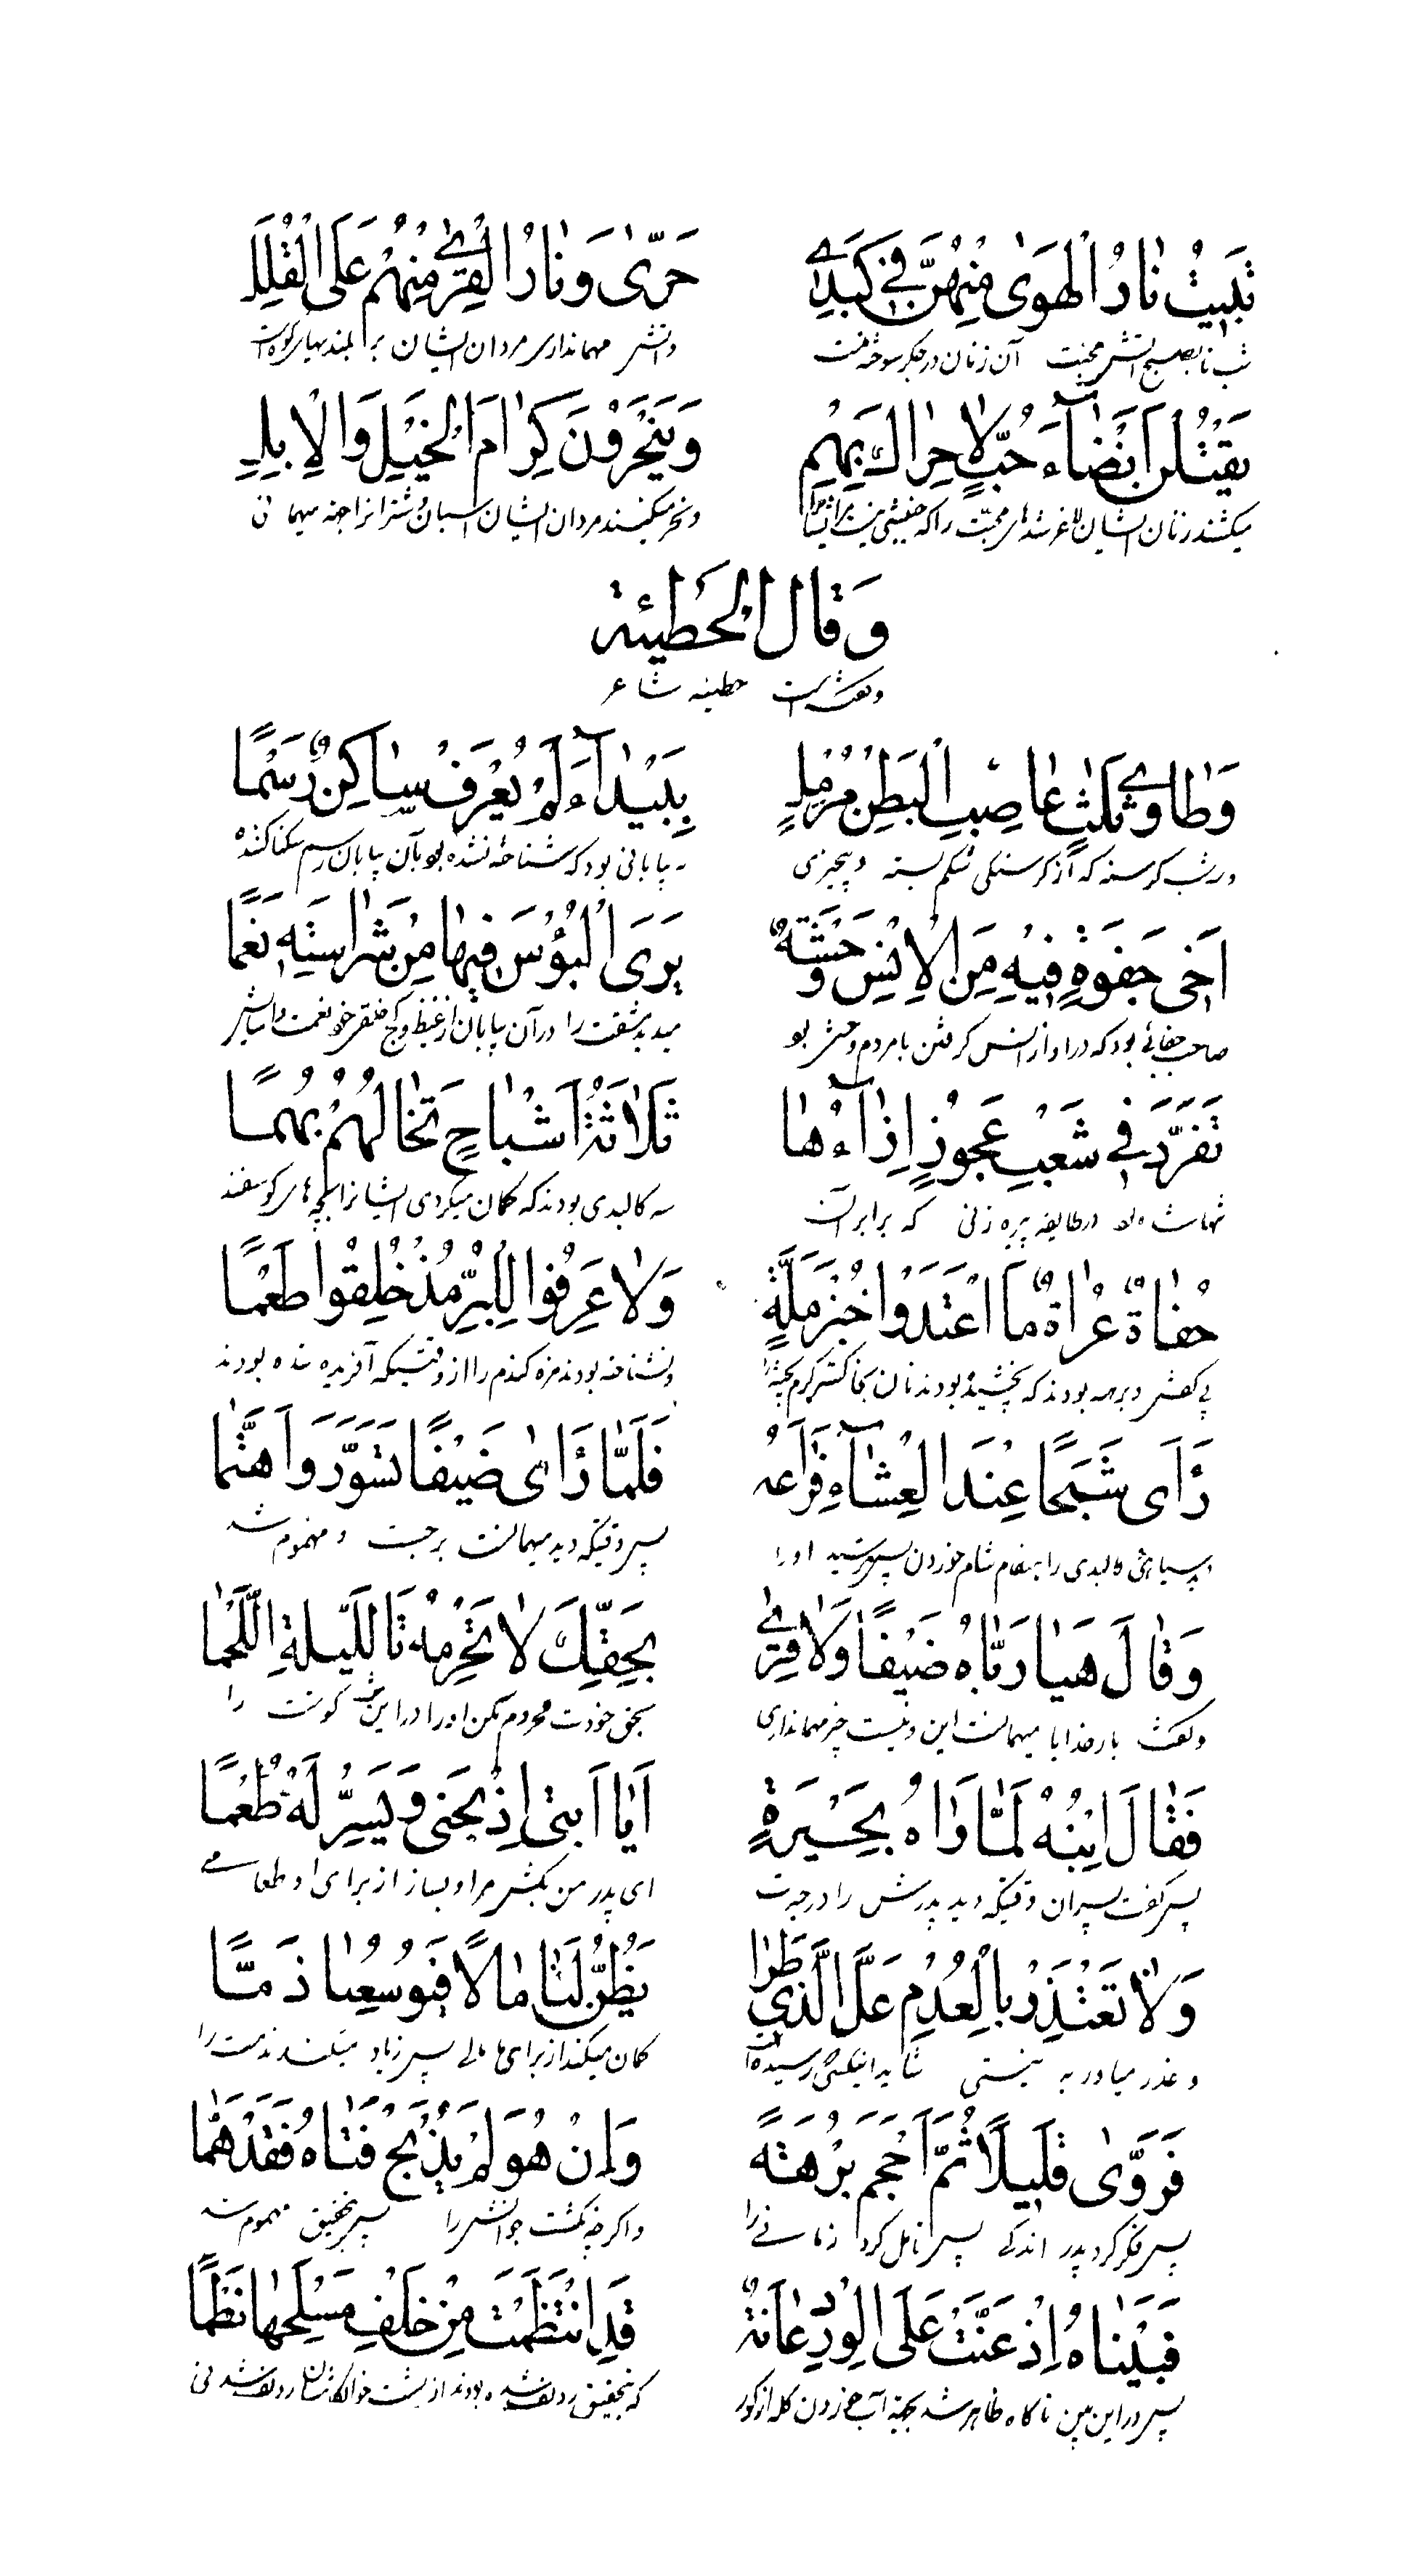 تَبِيتُ نَارُ الْهَوَىٰ مِنْهُنَّ فِي كَبَدِي حَرَّىٰ وَنَارُ الْقِرَىٰ مِنْهُمْ عَلَى الْقُلَلِ
شب تا بصبح آتش محبت آن زنان در جگر سوخته منست وآتش مهمانداری مردان ایشان بر بلندیهای کوه است
يَقْتُلْنَ أَنْضَاءَ حُبٍّ لَا حِرَاكَ بِهِمْ وَيَنْحَرُونَ كِرَامَ الْخَيْلِ وَالْإِبِلِ
میکشند زنان ایشان لاغر شدهای محبت را که جنبشی نیست ونحر میکنند مردان ایشان اسبان و شتران را بجهة میهمانی
وَقَالَ الْحُطَيْئَة
وگفته است حطیئه شاعر
وَطَاوِي ثَلَاثٍ عَاصِبِ الْبَطْنِ مُرْمِلٍ بِبَيْدَاءَ لَمْ يُعْرَفْ سَاكِنٌ رَسْمًا
گرسنه که از گرسنگی شکم بسته وبیچیزی بیابانی بود که شناخته نشده بود بآن بیابان رسم سکنا کننده
أَخِي جَفْوَةٍ فِيهِ مِنَ الْإِنْسِ وَحْشَةٌ يَرَى الْبُؤْسَ فِيهَا مِنْ شَرَاسَتِهِ نَعْمَا
صاحب جفائی بود که در او از انس گرفتن با مردم وحشت بود میدید مشقت را در آن بیابان از غیظ و کج خلقی خود نعمت
تَفَرَّدَ فِي شَعْبٍ عَجُوزٍ إِزَاءَهَا ثَلَاثَةُ أَشْبَاحٍ تَخَالُهُمْ بَهْمَا
تنها شده بود در طایفه پیره زنی که برابر آن سه کالبدی بودند که گمان میکردی ایشانرا بچه های گوسفند
حُفَاةٌ عُرَاةٌ مَا اغْتَذَوْا خُبْزَ مَلَّةٍ وَلَا عَرِفُوا لِلْبُرِّ مُذْ خُلِقُوا طَعْمًا
بی کفش و برهنه بودند که نچشیده بودند نان بخاکستر گرم پخته را ونشناخته بودند مزه گندم را از وقتیکه آفریده شده بودند
رَأَى شَبَحًا عِنْدَ الْعِشَاءِ فَرَاعَهُ فَلَمَّا رَأَىٰ ضَيْفًا تَسَوَّرَ وَاهْتَمَّا
سیاهی کالبدی را هنگام شام خوردن پس ترسانید او را پس وقتیکه دید میهمانست برجست و مهموم شد
وَقَالَ هَيَا رَبَّاهُ ضَيْفًا وَلَا قِرَىٰ بِحَقِّكَ لَا تَحْرِمْهُ تَاللَّيْلَةِ اللَّحْمَا
وگفت بار خدایا میهمانست این ونیست چیز مهمانداری بحق خودت محروم مکن او را در این شب گوشت را
فَقَالَ ابْنُهُ لَمَّا رَاهُ بِحَيْرَةٍ أَيَا أَبَتِي اذْبَحْنِي وَيَسِّرْ لَهُ طُعْمًا
پس گفت پسران وقتیکه دید پدرش را در حیرت ای پدر من بکش مرا و بساز از برای او طعامی
وَلَا تَعْتَذِرْ بِالْعُدْمِ عَلَّ الَّذِي طَرَا يَظُنُّ لَنَا مَالًا فَيُوسِعُنَا ذَمًّا
وعذر میاور به نیستی شاید آنیکسی رسیده است گمان میکند از برای ما مالی پس زیاد میکند مذمت را
فَرَوَّىٰ قَلِيلًا ثُمَّ أَحْجَمَ بُرْهَةً وَإِنْ هُوَ لَمْ يَذْبَحْ فَتَاهُ فَقَدْ هَمَّا
پس فکر کرد پدر اندکی پس تامل کرد زمانی را واگرچه نکشت جوانش را پس بتحقیق مهموم شد
فَبَيْنَاهُ إِذْ عَنَّتْ عَلَى الْوِرْدِ عَانَةٌ قَدِ انْتَظَمَتْ مِنْ خَلْفِ مِسْحَلِهَا نَظْمًا
پس در این بین ناگاه ظاهر شد بجهة آب خوردن گله از گور که بتحقیق ردیف شده بودند از پشت